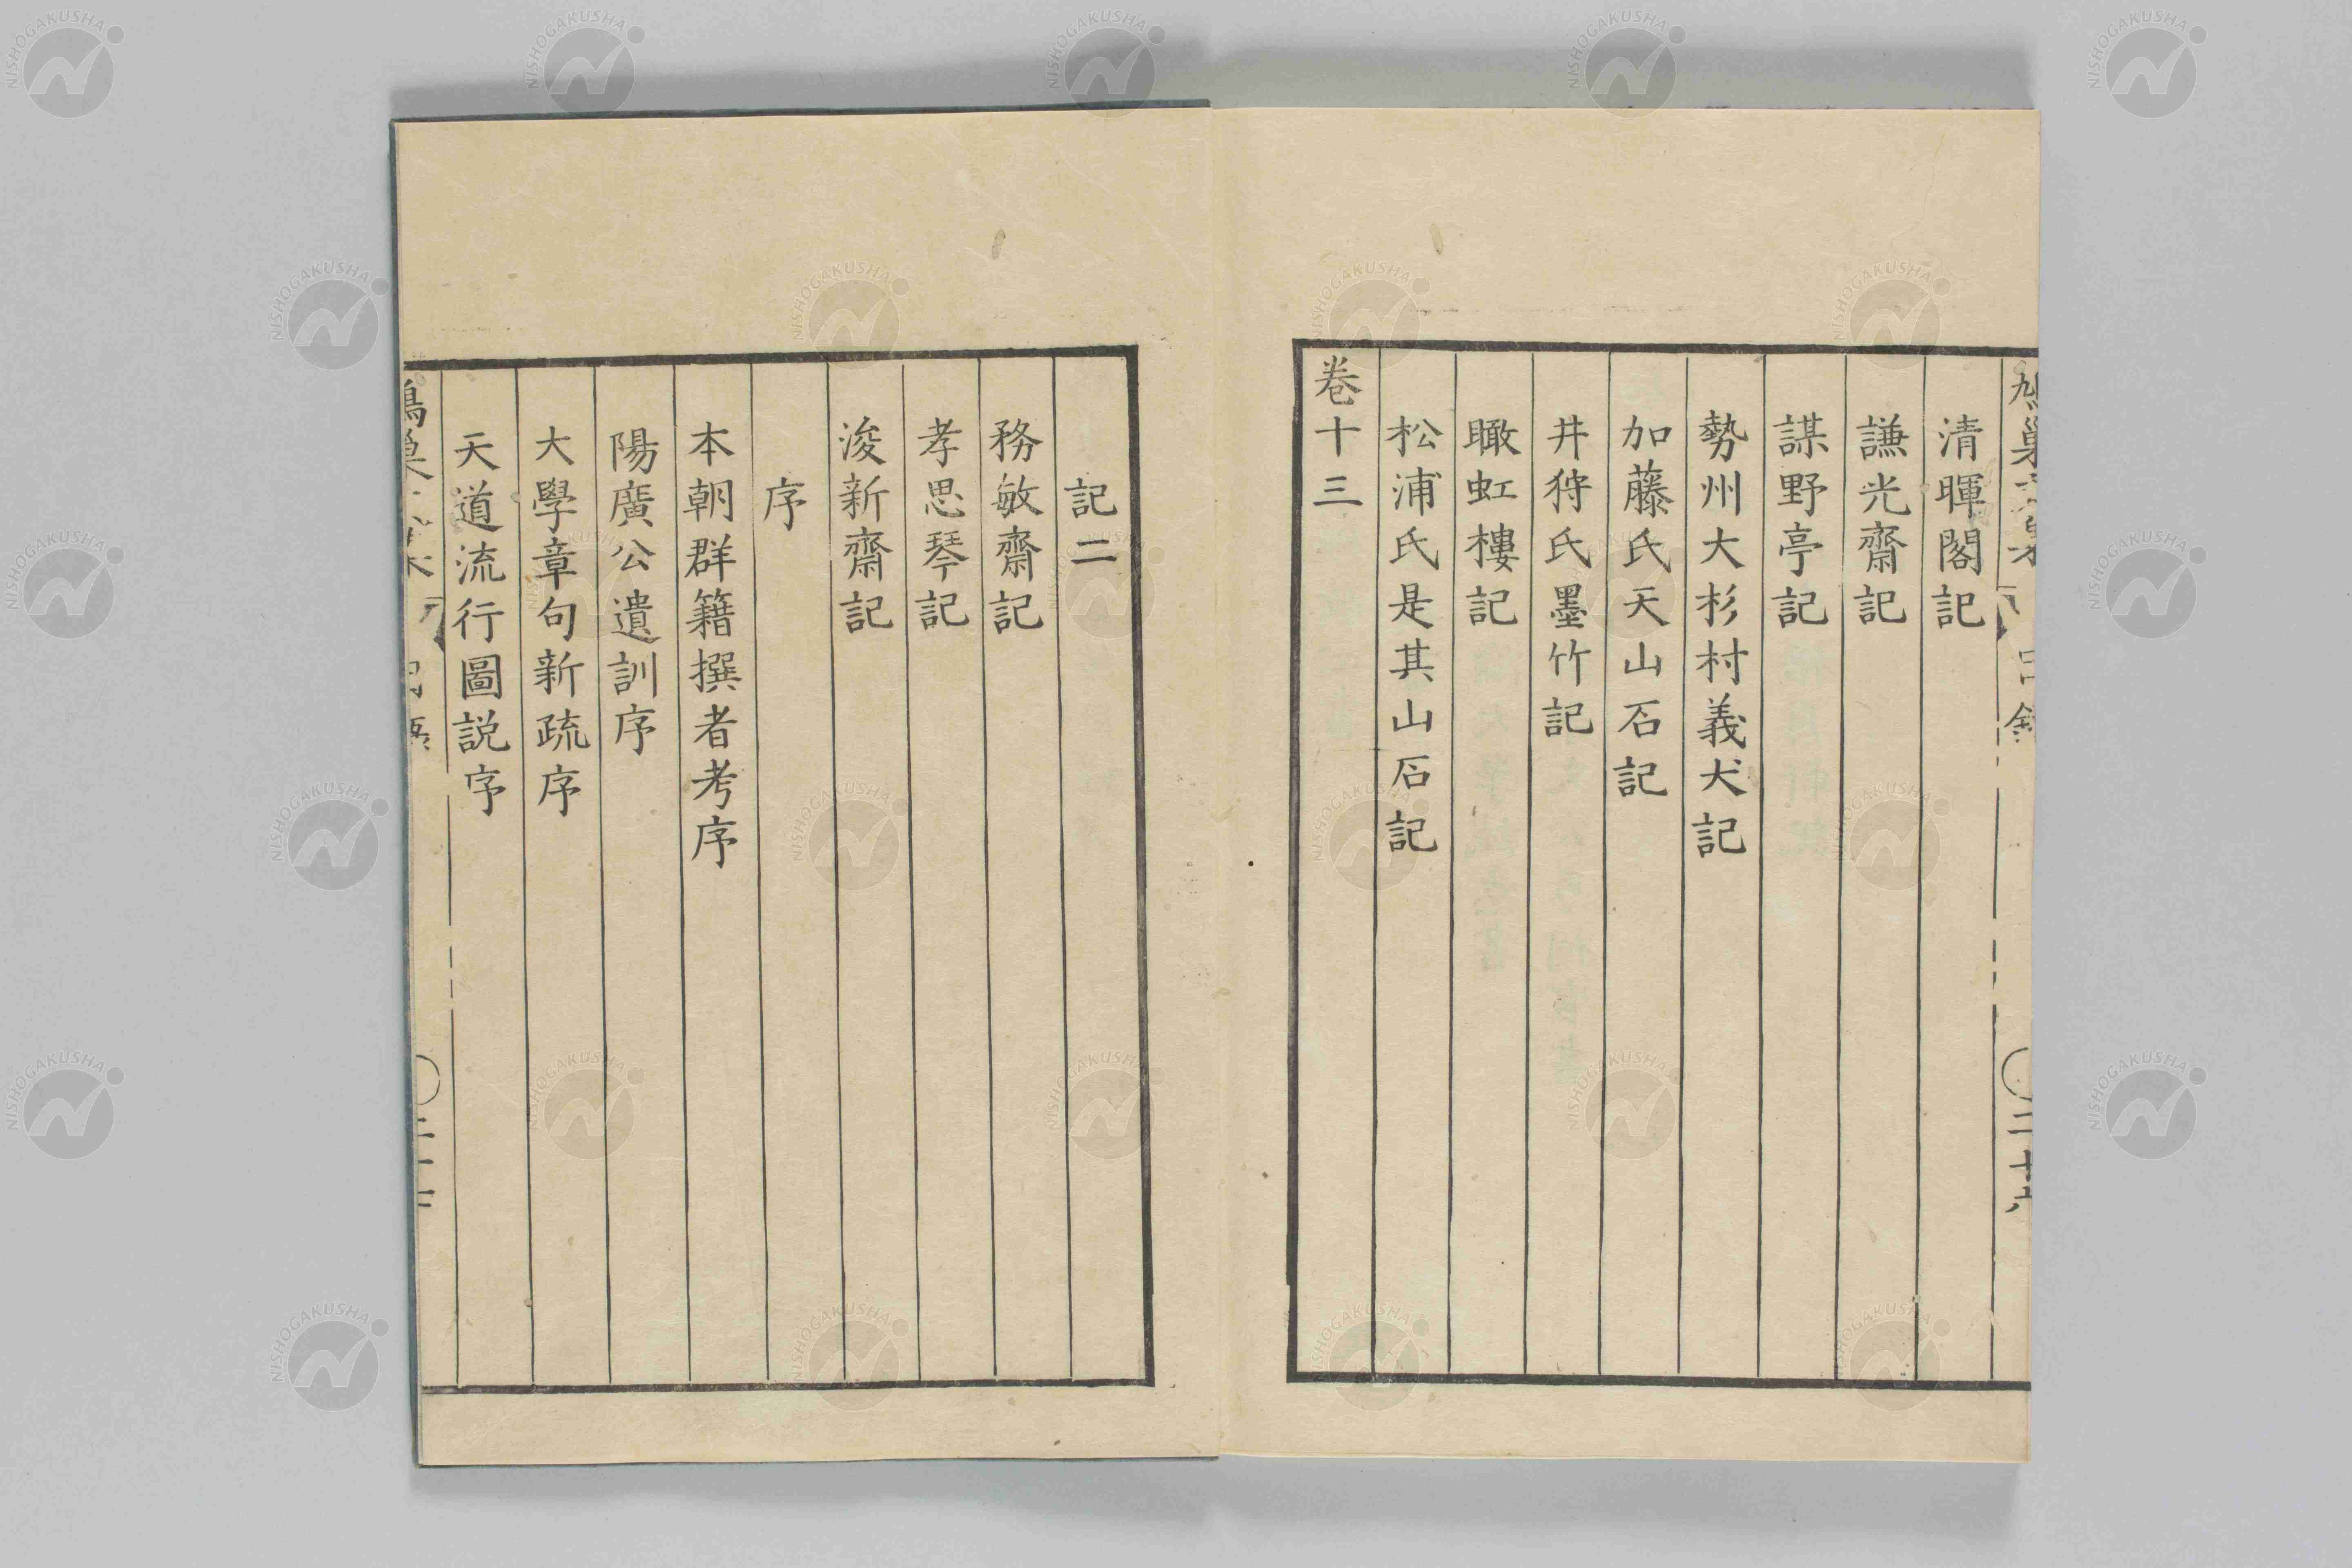 清暉閣記
謙光齋記
謀野亭記
勢州大杉村義犬記
加藤氏天山石記
井狩氏墨竹記
瞰虹樓記
松浦氏是其山石記
卷十三
記二
務敏齋記
孝思琴記
浚新齋記
序
本朝群籍撰者考序
陽廣公遺訓序
大學章句新疏序
天道流行圖説序
NISHOGAKUSHA